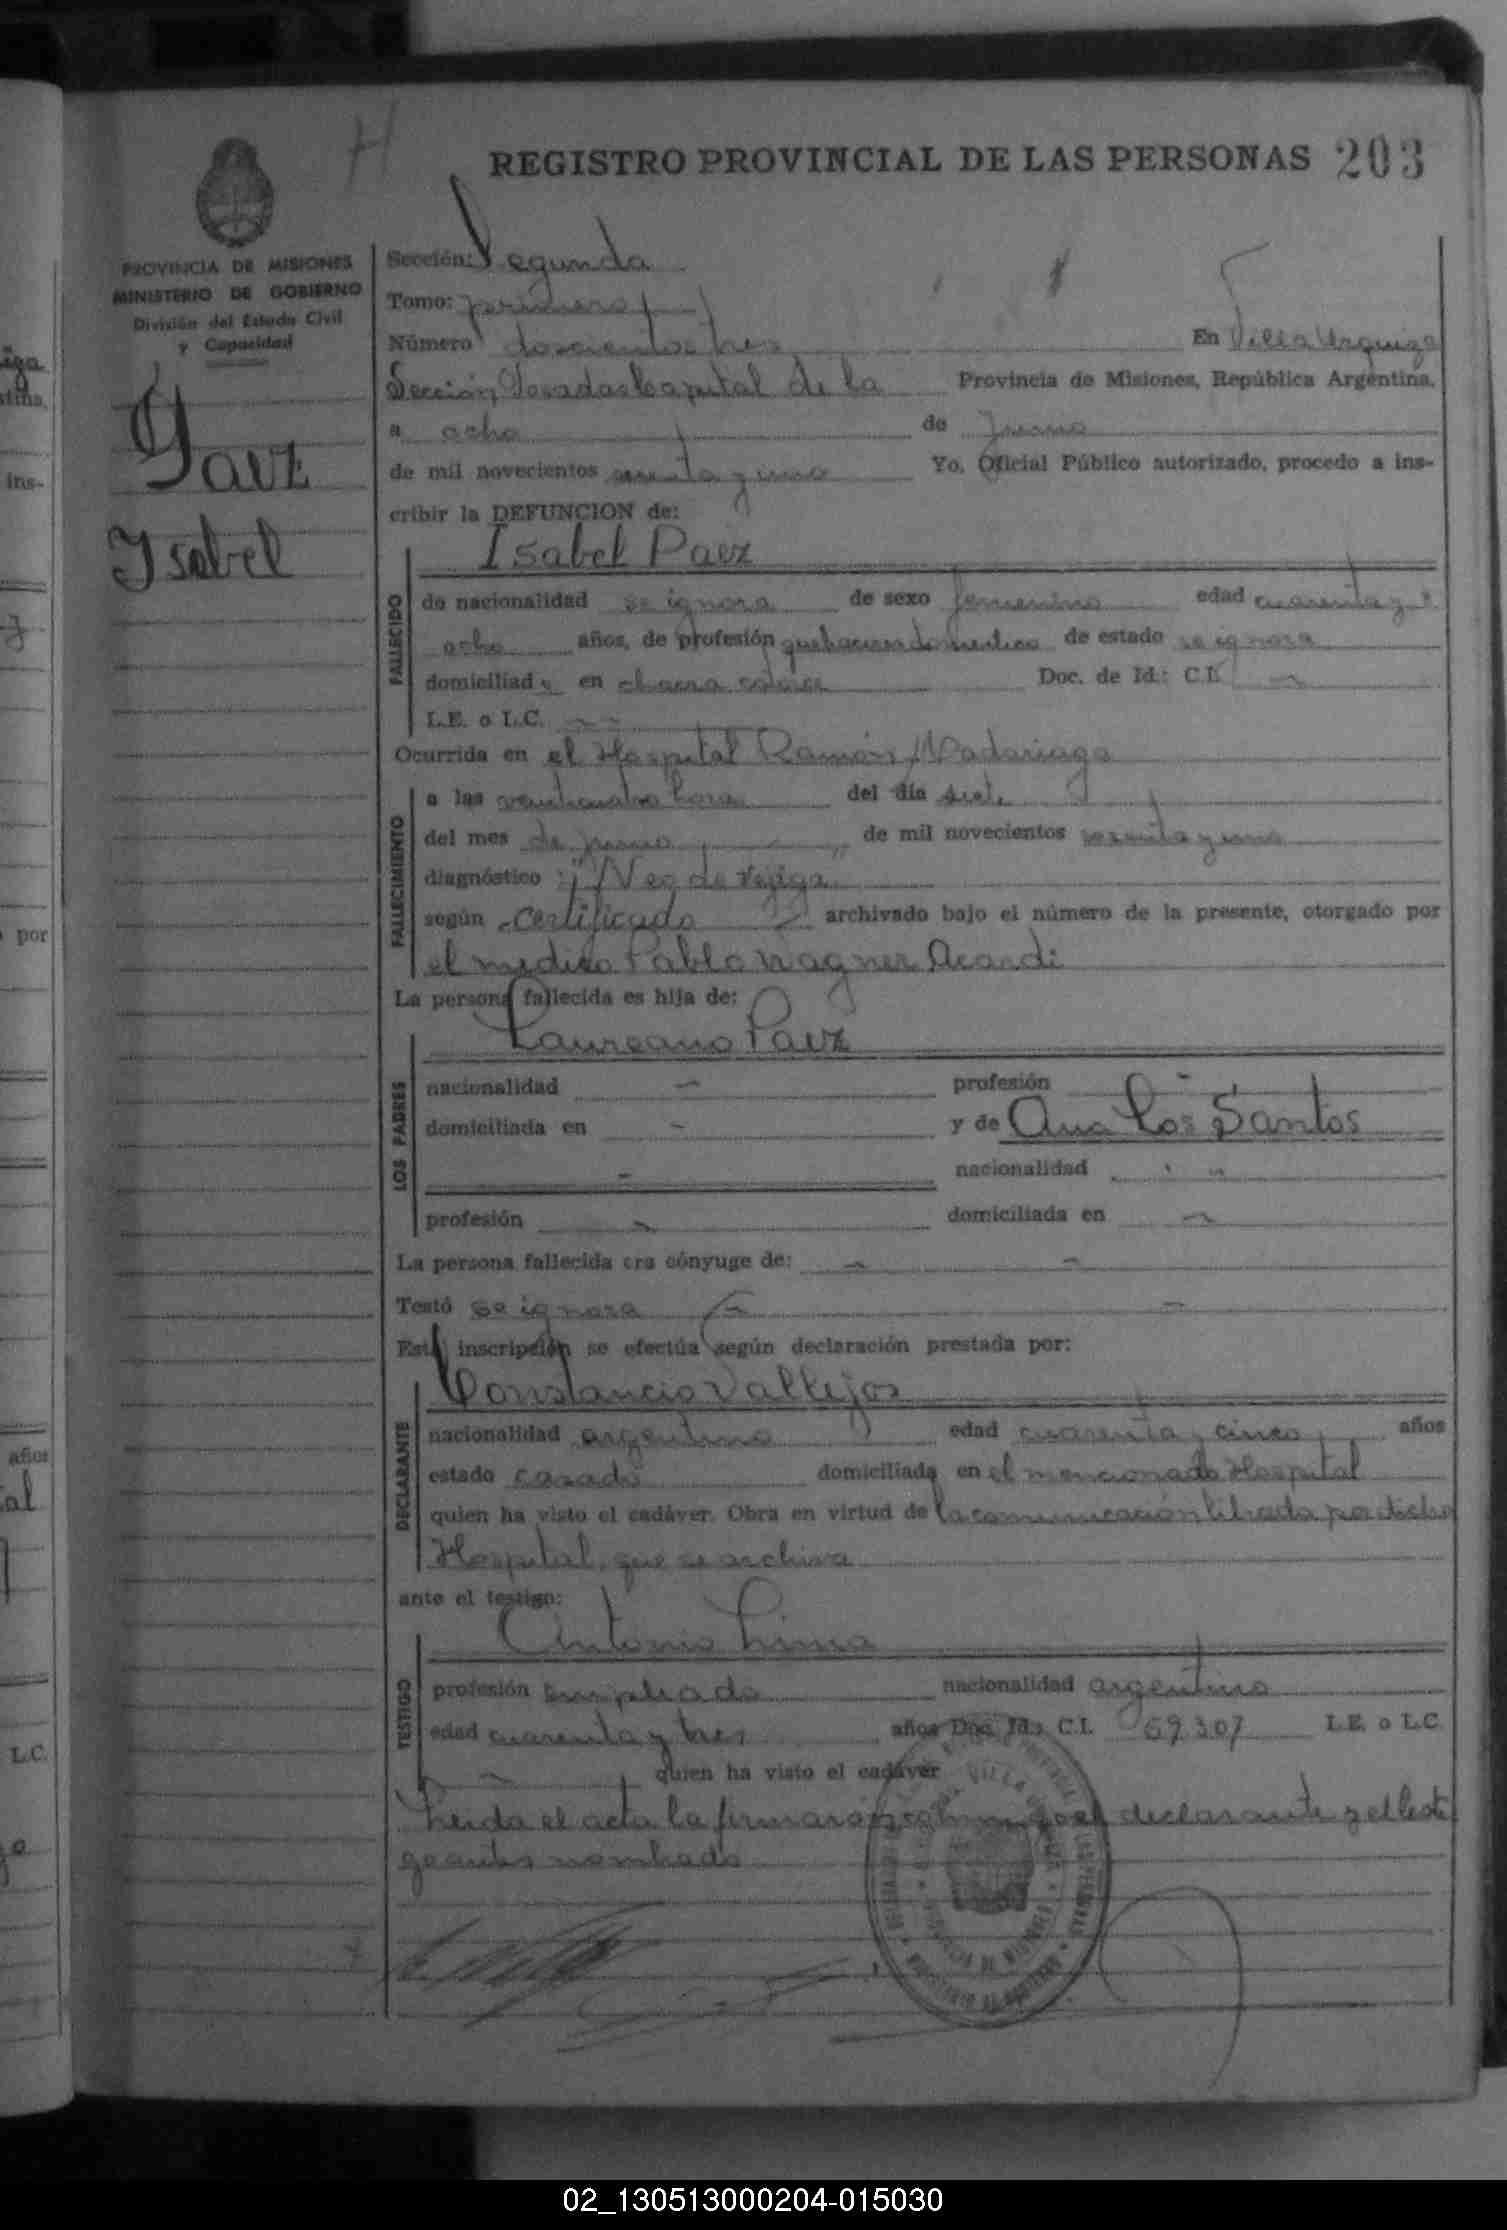 REGISTRO PROVINCIAL DE LAS PERSONAS 203
PROVINCIA DE MISIONES
MINISTERIO DE GOBIERNO
División del Estado Civil
y Capacidad
Paez
Isabel
Sección: Segunda
Tomo: primero
Número doscientos tres En Villa Urquiza
Sección, Posadas Capital de la Provincia de Misiones, República Argentina,
a ocho de Junio
de mil novecientos sesenta y uno Yo, Oficial Público autorizado, procedo a ins-
cribir la DEFUNCION de:
Isabel Paez
FALLECIDO
de nacionalidad se ignora de sexo femenino edad cuarenta y
ocho años, de profesión quehaceres domestico de estado se ignora
domiciliada en chacra catorce Doc. de Id.: C.I.
L.E. o L.C.
Ocurrida en el Hospital Ramón Madariaga
FALLECIMIENTO
a las veinticuatro horas del día siete
del mes de junio de mil novecientos sesenta y uno
diagnóstico "Neo de vejiga"
según certificado archivado bajo el número de la presente, otorgado por
el medico Pablo Wagner Acardi
La persona fallecida es hija de:
Laureano Paez
LOS PADRES
nacionalidad profesión
domiciliada en y de Ana Los Santos
nacionalidad
profesión domiciliada en
La persona fallecida era cónyuge de:
Testó se ignora
Esta inscripción se efectúa según declaración prestada por:
Constancio Vallejos
DECLARANTE
nacionalidad argentino edad cuarenta y cinco años
estado casado domiciliado en el mencionado Hospital
quien ha visto el cadáver. Obra en virtud de la comunicación librada por dicho
Hospital, que se archiva
ante el testigo:
Antonio Lima
TESTIGO
profesión empleado nacionalidad argentino
edad cuarenta y tres años Doc. Id.: C.I. 69.307 L.E. o L.C.
quien ha visto el cadáver
Leida el acta la firmaron conmigo el declarante y el testi
go antes nombrado
02_130513000204-015030